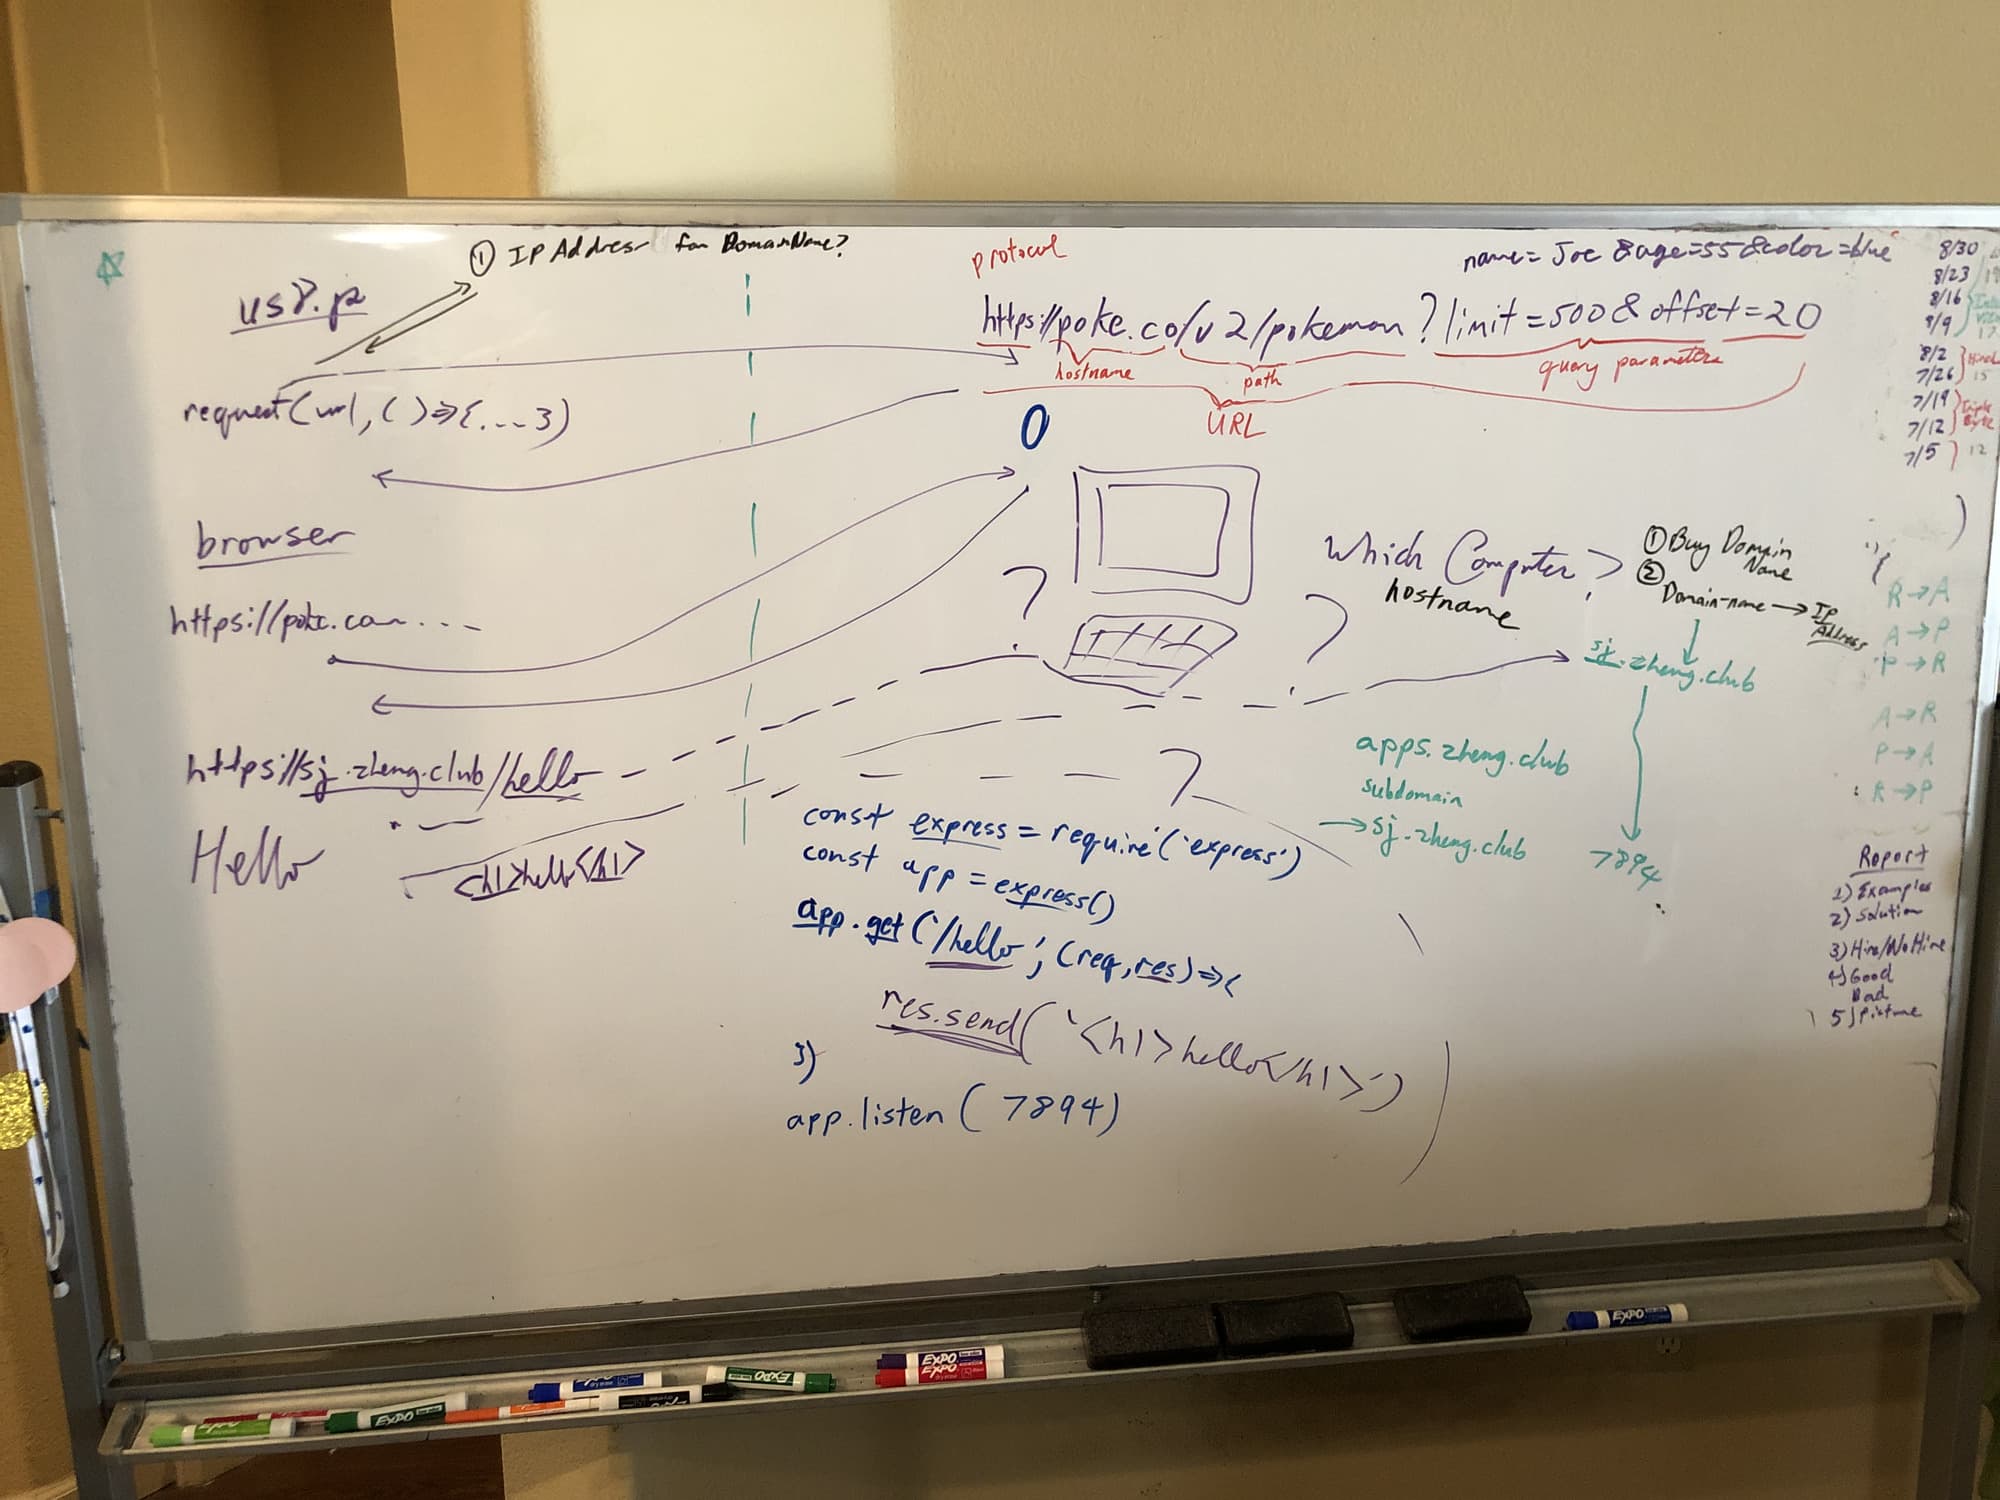 ① IP Address for DomainName?
us8.p
request(url, () => {...})
browser
https://poke.com...
https://sj.zheng.club/hello
Hello
<h1>hello<h1>
protocol
name=Joe&age=55&color=blue
https://poke.co/v2/pokemon?limit=500&offset=20
hostname
path
query parameters
URL
0
?
?
?
Which Computer?
hostname
① Buy Domain
Name
② Domain-name → IP
Address
sj.zheng.club
7894
apps.zheng.club
subdomain
→ sj.zheng.club
const express = require('express')
const app = express()
app.get('/hello', (req, res) => {
res.send('<h1>hello</h1>')
})
app.listen(7894)
8/30
8/23
8/16
8/9
8/2
7/26
15
7/19
7/12
Triple
Byte
7/5
12
R → A
A → P
P → R
A → R
P → A
R → P
Report
1) Examples
2) Solution
3) Hire/No Hire
4) Good
Bad
5) Picture
EXPO
EXPO
EXPO
EXPO
EXPO
EXPO